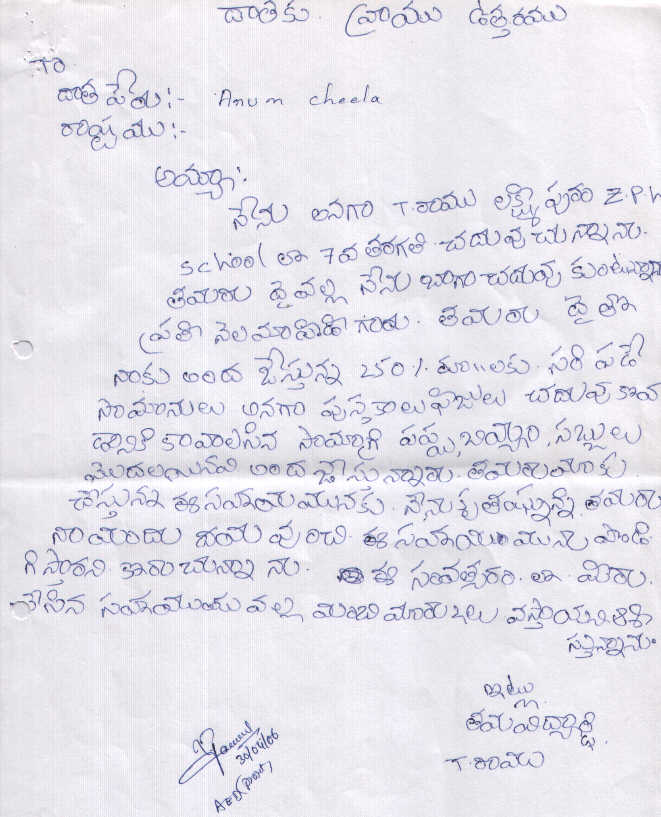 దాతకు వ్రాయు ఉత్తరము
TO
దాత పేరు:- Anum cheela
రాష్ట్రము:-
అయ్యా:
నేను అనగా T.రాము లక్ష్మీపురం Z.P.H
school లా 7వ తరగతి చదువుచున్నాను.
తమరు దైవల్ల నేను బాగా చదువు కుంటున్నాను
ప్రతి నెల మాహిడి గారు. తమరు దై తొ
నాకు అంద జేస్తున్న 250/. రూ॥లకు. సరి పడే
సామానులు అనగా పుస్తకాలు ఫిజులు చదువుకొవ
డానికి కావాలసిన సామాగ్రి పప్పు, బియ్యం, సబ్బులు
మొదలయినవి అంద జేసుచున్నారు. తమరు మాకు
చేస్తున్న ఈ సహాయమునకు. నేను కృతజ్ఞున్ని తమరు
నా యందు దయ వుంచి. ఈ సహాయమును పొడి
గిస్తారని కోరుచున్నాను. ఈ సంవత్సరం. లా. మీరు.
చేసిన సహాయము వల్ల మంచి మార్కులు వస్తాయని ఆశి
స్తున్నాను.
ఇట్లు
తమ విద్యార్థి.
T.రాము
30/04/06